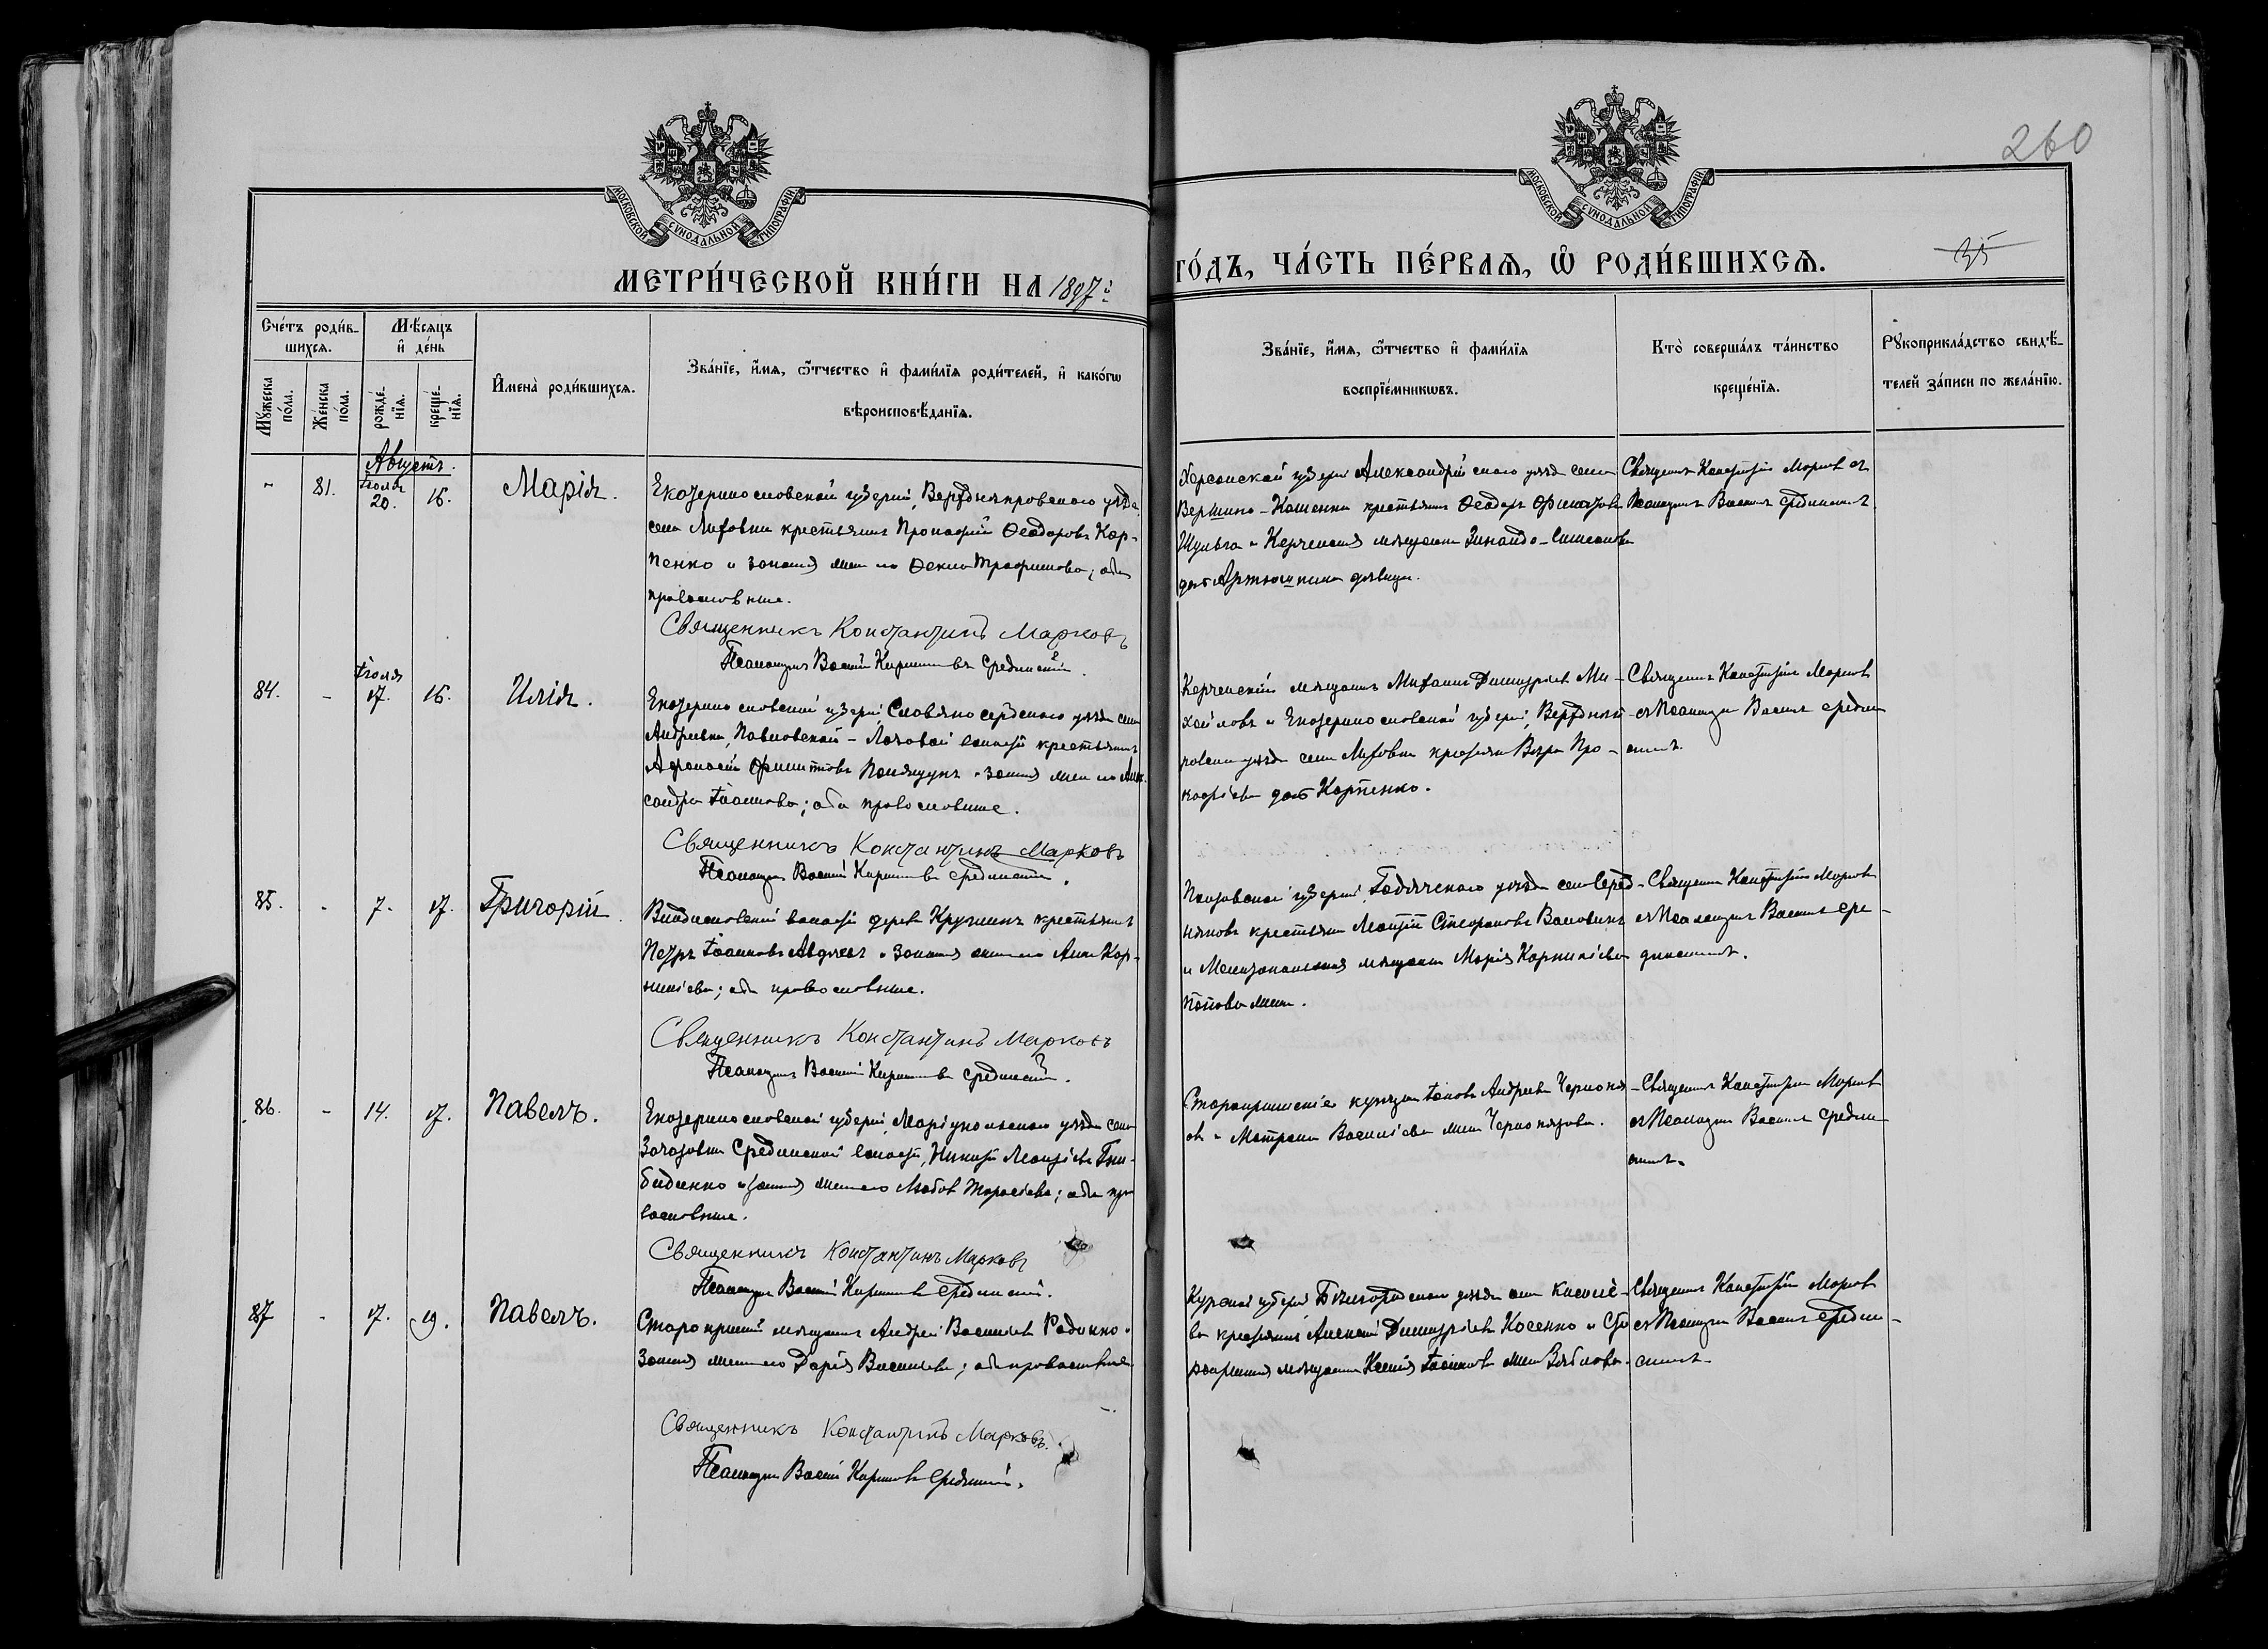 260
МОСКОВСКОЙ СѴНОДАЛЬНОЙ ТИПОГРАФІИ
МОСКОВСКОЙ СѴНОДАЛЬНОЙ ТИПОГРАФІИ
МЕТРИ́ЧЕСКОЙ КНИ́ГИ НА 1897й
ГО́ДЪ, ЧА́СТЬ ПЕ́РВАѦ, Ѿ РОДИ́ВШИХСѦ.
35
Сче́тъ роди́в-
шихсѧ.
Мꙋжеска по́ла.
Же́нска по́ла.
Мѣ́сѧцъ и҆ де́нь
рожде́-нїѧ.
креще́-нїѧ.
И҆мена̀ роди́вшихсѧ.
Зва́нїе, и҆́мѧ, ѻ҆́тчество и҆ фами́лїѧ роди́телей, и҆ како́гѡ
вѣроисповѣ́данїѧ.
Зва́нїе, и҆́мѧ, ѻ҆́тчество и҆ фами́лїѧ
воспрїе́мникѡвъ.
Кто̀ соверша́лъ та́инство
креще́нїѧ.
Рꙋкоприкла́дство свидѣ́-
телей за́писи по жела́нїю.
Августъ.
- 81. Іюля 20. 16. Марія.
Екатеринославской губерніи, Верхднепровскаго уѣзда
села Лиховки крестьянинъ Прокофій Ѳеодоровъ Кар-
пенко и законная жена его Ѳекла Трофимова; оба
православные.
Священникъ Константинъ Марковъ
Псаломщикъ Василій Срединскій.
Херсонской губерніи Александрійскаго уѣзда села
Вершино-Каменки крестьянинъ Ѳеодоръ
Шульга и Керченская мѣщанка
дочь Артюшкина дѣвица.
Священникъ Константинъ Марковъ съ
Псаломщикомъ Василіемъ Срединскимъ
84. - Іюля 17. 16. Илія.
Екатеринославской губерніи, Славяносербскаго уѣзда села
Андреевки, Павловской волости крестьянинъ
Афанасій и законная жена его Алек-
сандра Іоаннова; оба православные.
Священникъ Константинъ Марковъ
Псаломщикъ Василій Срединскій.
Керченскій мѣщанинъ Михаилъ Димитріевъ Ми-
хайловъ и Екатеринославской губерніи, Верхднеп-
ровскаго уѣзда села Лиховки крестьянка Вѣра Про-
кофіева дочь Карпенко.
Священникъ Константинъ Марковъ
съ Псаломщикомъ Василіемъ Средин-
скимъ.
85. - 7. 17. Григорій.
волости деревни крестьянинъ
Петръ Іоанновъ Авдѣевъ и законная жена его Анна Кор-
ниліева; оба православные.
Священникъ Константинъ Марковъ
Псаломщикъ Василій Срединскій.
Полтавской губерніи, Гадячскаго уѣзда села
крестьянинъ Стефановъ
и Мелитопольская мѣщанка Марія Корниліева
Попова жена.
Священникъ Константинъ Марковъ
съ Псаломщикомъ Василіемъ Сре-
динскимъ.
86. - 14. 17. Павелъ.
Екатеринославской губерніи, Маріупольскаго уѣзда села
волости,
и законная жена его Любовь Тарасіева; оба пра-
вославные.
Священникъ Константинъ Марковъ
Псаломщикъ Василій Срединскій.
Іаковъ Андреевъ
и Матрона Василіева жена
Священникъ Константинъ Марковъ
съ Псаломщикомъ Василіемъ Средин-
скимъ.
87 - 17. 19. Павелъ.
Старокрымскій мѣщанинъ Андрей Василіевъ и
законная жена его Дарія Василіева; оба православные.
Священникъ Константинъ Марковъ.
Псаломщикъ Василій Срединскій.
Курской губерніи Бѣлгородскаго уѣзда села
крестьянинъ Алексій Димитріевъ Косенко и Ста-
рокрымская мѣщанка Ксенія Іоаннова жена
Священникъ Константинъ Марковъ
съ Псаломщикомъ Василіемъ Средин-
скимъ.